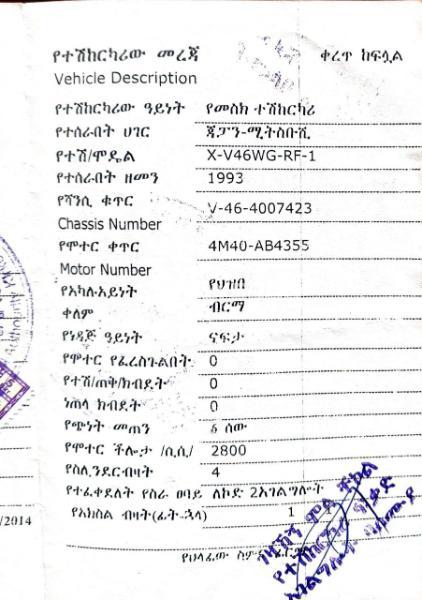 የተሽከርካሪው መረጃ ቀረጥ ከፍሏል
Vehicle Description
የተሽከርካሪው ዓይነት የመስክ ተሽከርካሪ
የተሰራበት ሀገር ጃፓን-ሚትስቡሺ
የተሽ/ሞዴል X-V46WG-RF-1
የተሰራበት ዘመን 1993
የሻንሲ ቁጥር V-46-4007423
Chassis Number
የሞተር ቀጥር 4M40-AB4355
Motor Number
የአካሉአይነት የህዝበ
ቀለም ብርማ
የነዳጅ ዓይነት ናፍታ
የሞተር የፈረስጉልበት 0
የተሽ/ጠቅ/ክብደት 0
ነጠላ ክብደት 0
የጭነት መጠን ሰው
የሞተር ችሎታ /ሲ.ሲ/ 2800
የሲሊንደርብዛት 4
የተፈቀደለት የስራ ፀባይ ለኮድ 2አገልግሎት
የአክስል ብዛት(ፊት-ኋላ) 1 1
/2014
የሀላፊው ስም